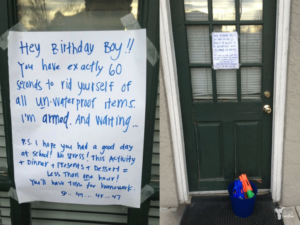 Hey Birthday Boy!!
You have exactly 60
seconds to rid yourself of
all un-waterproof items.
I'm armed. And waiting...
P.S. I hope you had a good day
at school! No stress! This Activity
+ Dinner + Presents + Dessert =
Less Than one hour!
You'll have time for homework.
50... 49... 48... 47